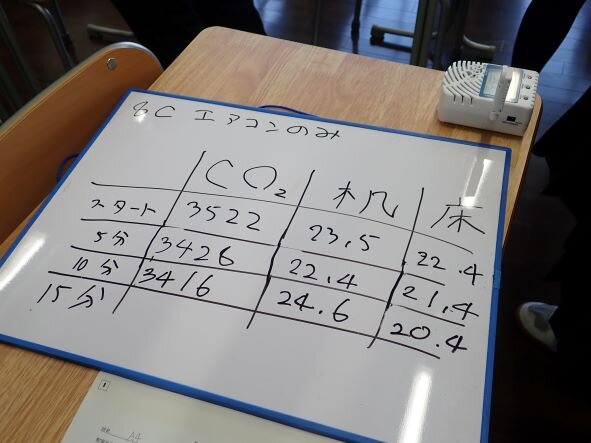 8C エアコンのみ
CO₂ 机 床
スタート 3522 23.5 22.4
5分 3426 22.4 21.4
10分 3416 24.6 20.4
15分